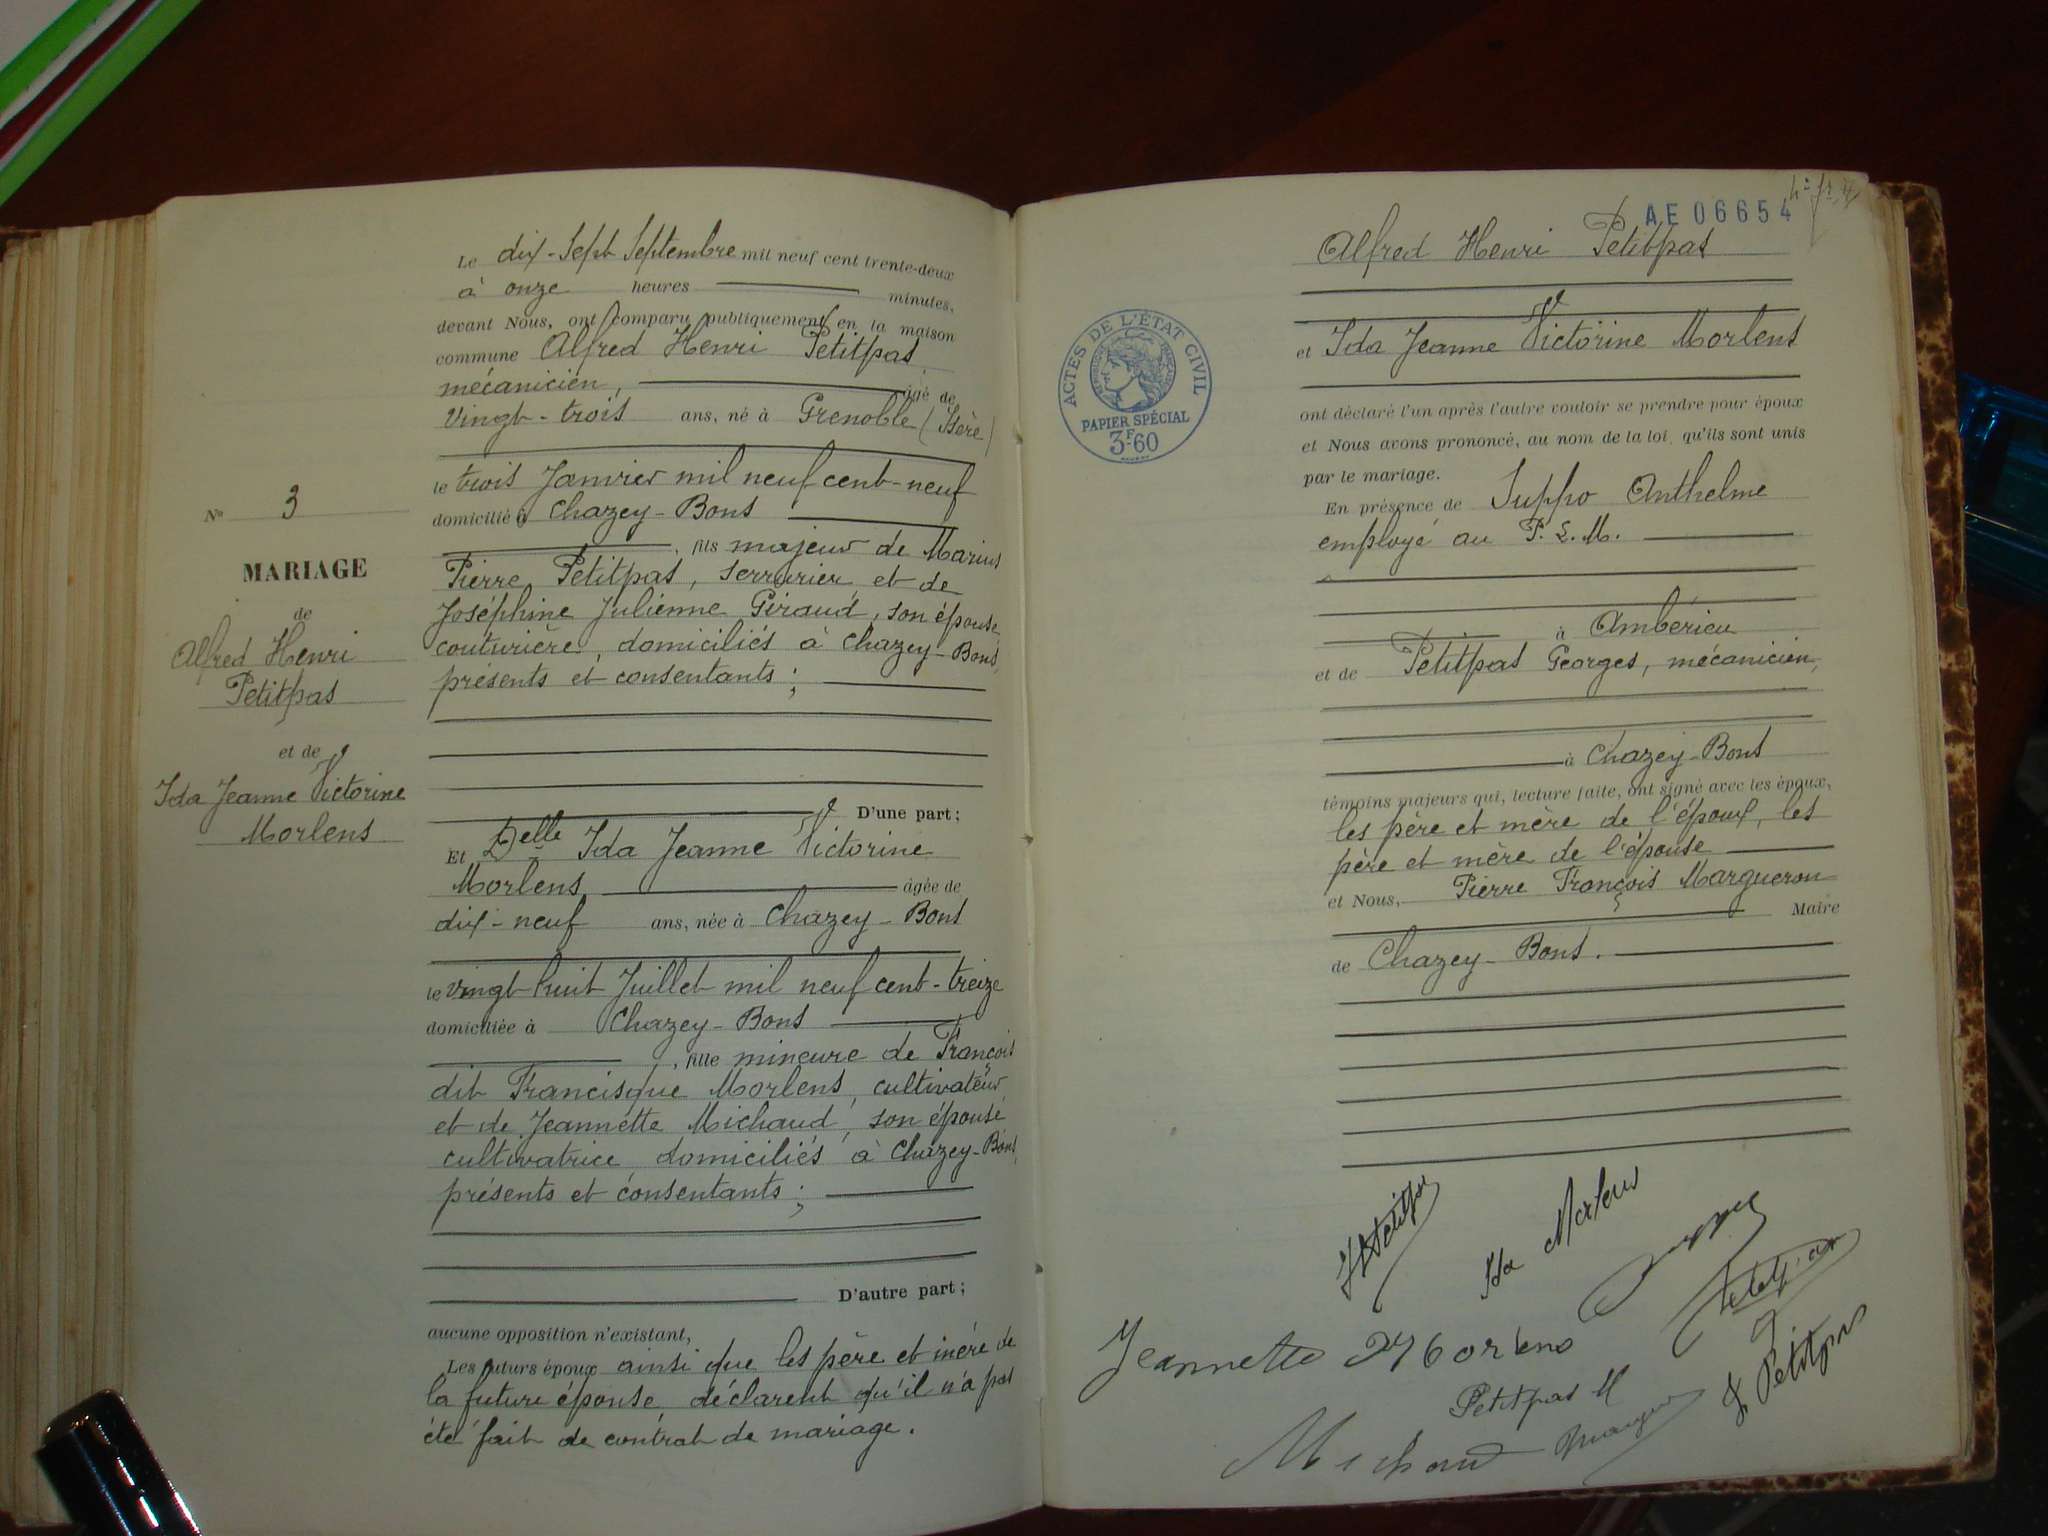 Le dix-sept Septembre mil neuf cent trente-deux
à onze heures minutes,
devant Nous, ont comparu publiquement en la maison
commune Alfred Henri Petitpas
mécanicien, âgé de
vingt-trois ans, né à Grenoble (Isère)
le trois Janvier mil neuf cent-neuf
domicilié à Chazey-Bons
, fils majeur de Marius
Pierre Petitpas, serrurier, et de
Joséphine Julienne Giraud, son épouse
couturière, domiciliés à Chazey-Bons,
présents et consentants ;
D'une part ;
Et Delle Ida Jeanne Victorine
Morlens, âgée de
dix-neuf ans, née à Chazey-Bons
le vingt huit Juillet mil neuf cent-treize
domiciliée à Chazey-Bons
, fille mineure de François
dit Francisque Morlens, cultivateur
et de Jeannette Michaud, son épouse
cultivatrice, domiciliés à Chazey-Bons,
présents et consentants ;
D'autre part ;
aucune opposition n'existant,
Les futurs époux ainsi que les père et mère de
la future épouse, déclarent qu'il n'a pas
été fait de contrat de mariage.
No 3
MARIAGE
de
Alfred Henri
Petitpas
et de
Ida Jeanne Victorine
Morlens
AE 06654
Alfred Henri Petitpas
et Ida Jeanne Victorine Morlens
ont déclaré l'un après l'autre vouloir se prendre pour époux
et Nous avons prononcé, au nom de la loi, qu'ils sont unis
par le mariage.
En présence de Suppo Anthelme
employé au P.L.M.
à Ambérieu
et de Petitpas Georges, mécanicien,
à Chazey-Bons
témoins majeurs qui, lecture faite, ont signé avec les époux,
les père et mère de l'époux, les
père et mère de l'épouse
et Nous, Pierre François Margueron
Maire
de Chazey-Bons.
ACTES DE L'ÉTAT CIVIL
RÉPUBLIQUE FRANÇAISE
PAPIER SPÉCIAL
3F60
Ida Morlens
Jeannette Morlens
Petitpas M
J Petitpas
Michaud